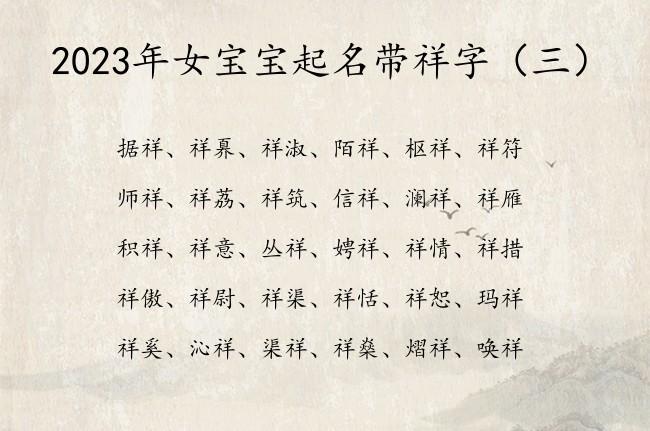 2023年女宝宝起名带祥字（三）
据祥、祥奡、祥淑、陌祥、枢祥、祥符
师祥、祥荔、祥筑、信祥、澜祥、祥雁
积祥、祥意、丛祥、娉祥、祥情、祥措
祥傲、祥尉、祥渠、祥恬、祥恕、玛祥
祥奚、沁祥、渠祥、祥燊、熠祥、唤祥